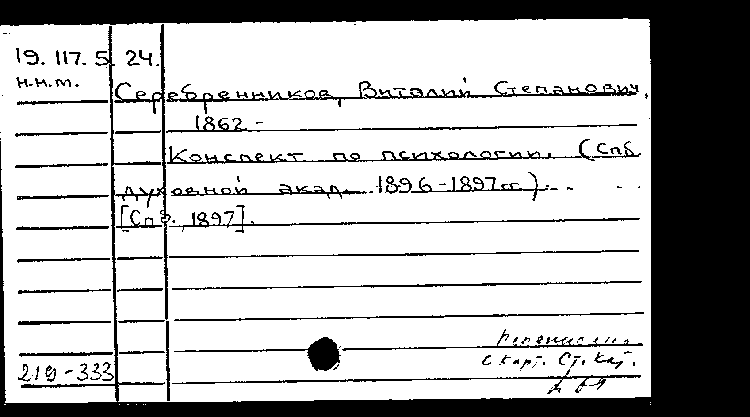 19. 117. 5. 24.
н.н.т.
Серебренников, Виталий Степанович,
1862 -
Конспект по психологии. (Спб.
духовной акад. 1896-1897 гг.)...
[Спб., 1897].
219-333
с карт. Ст. Кат.